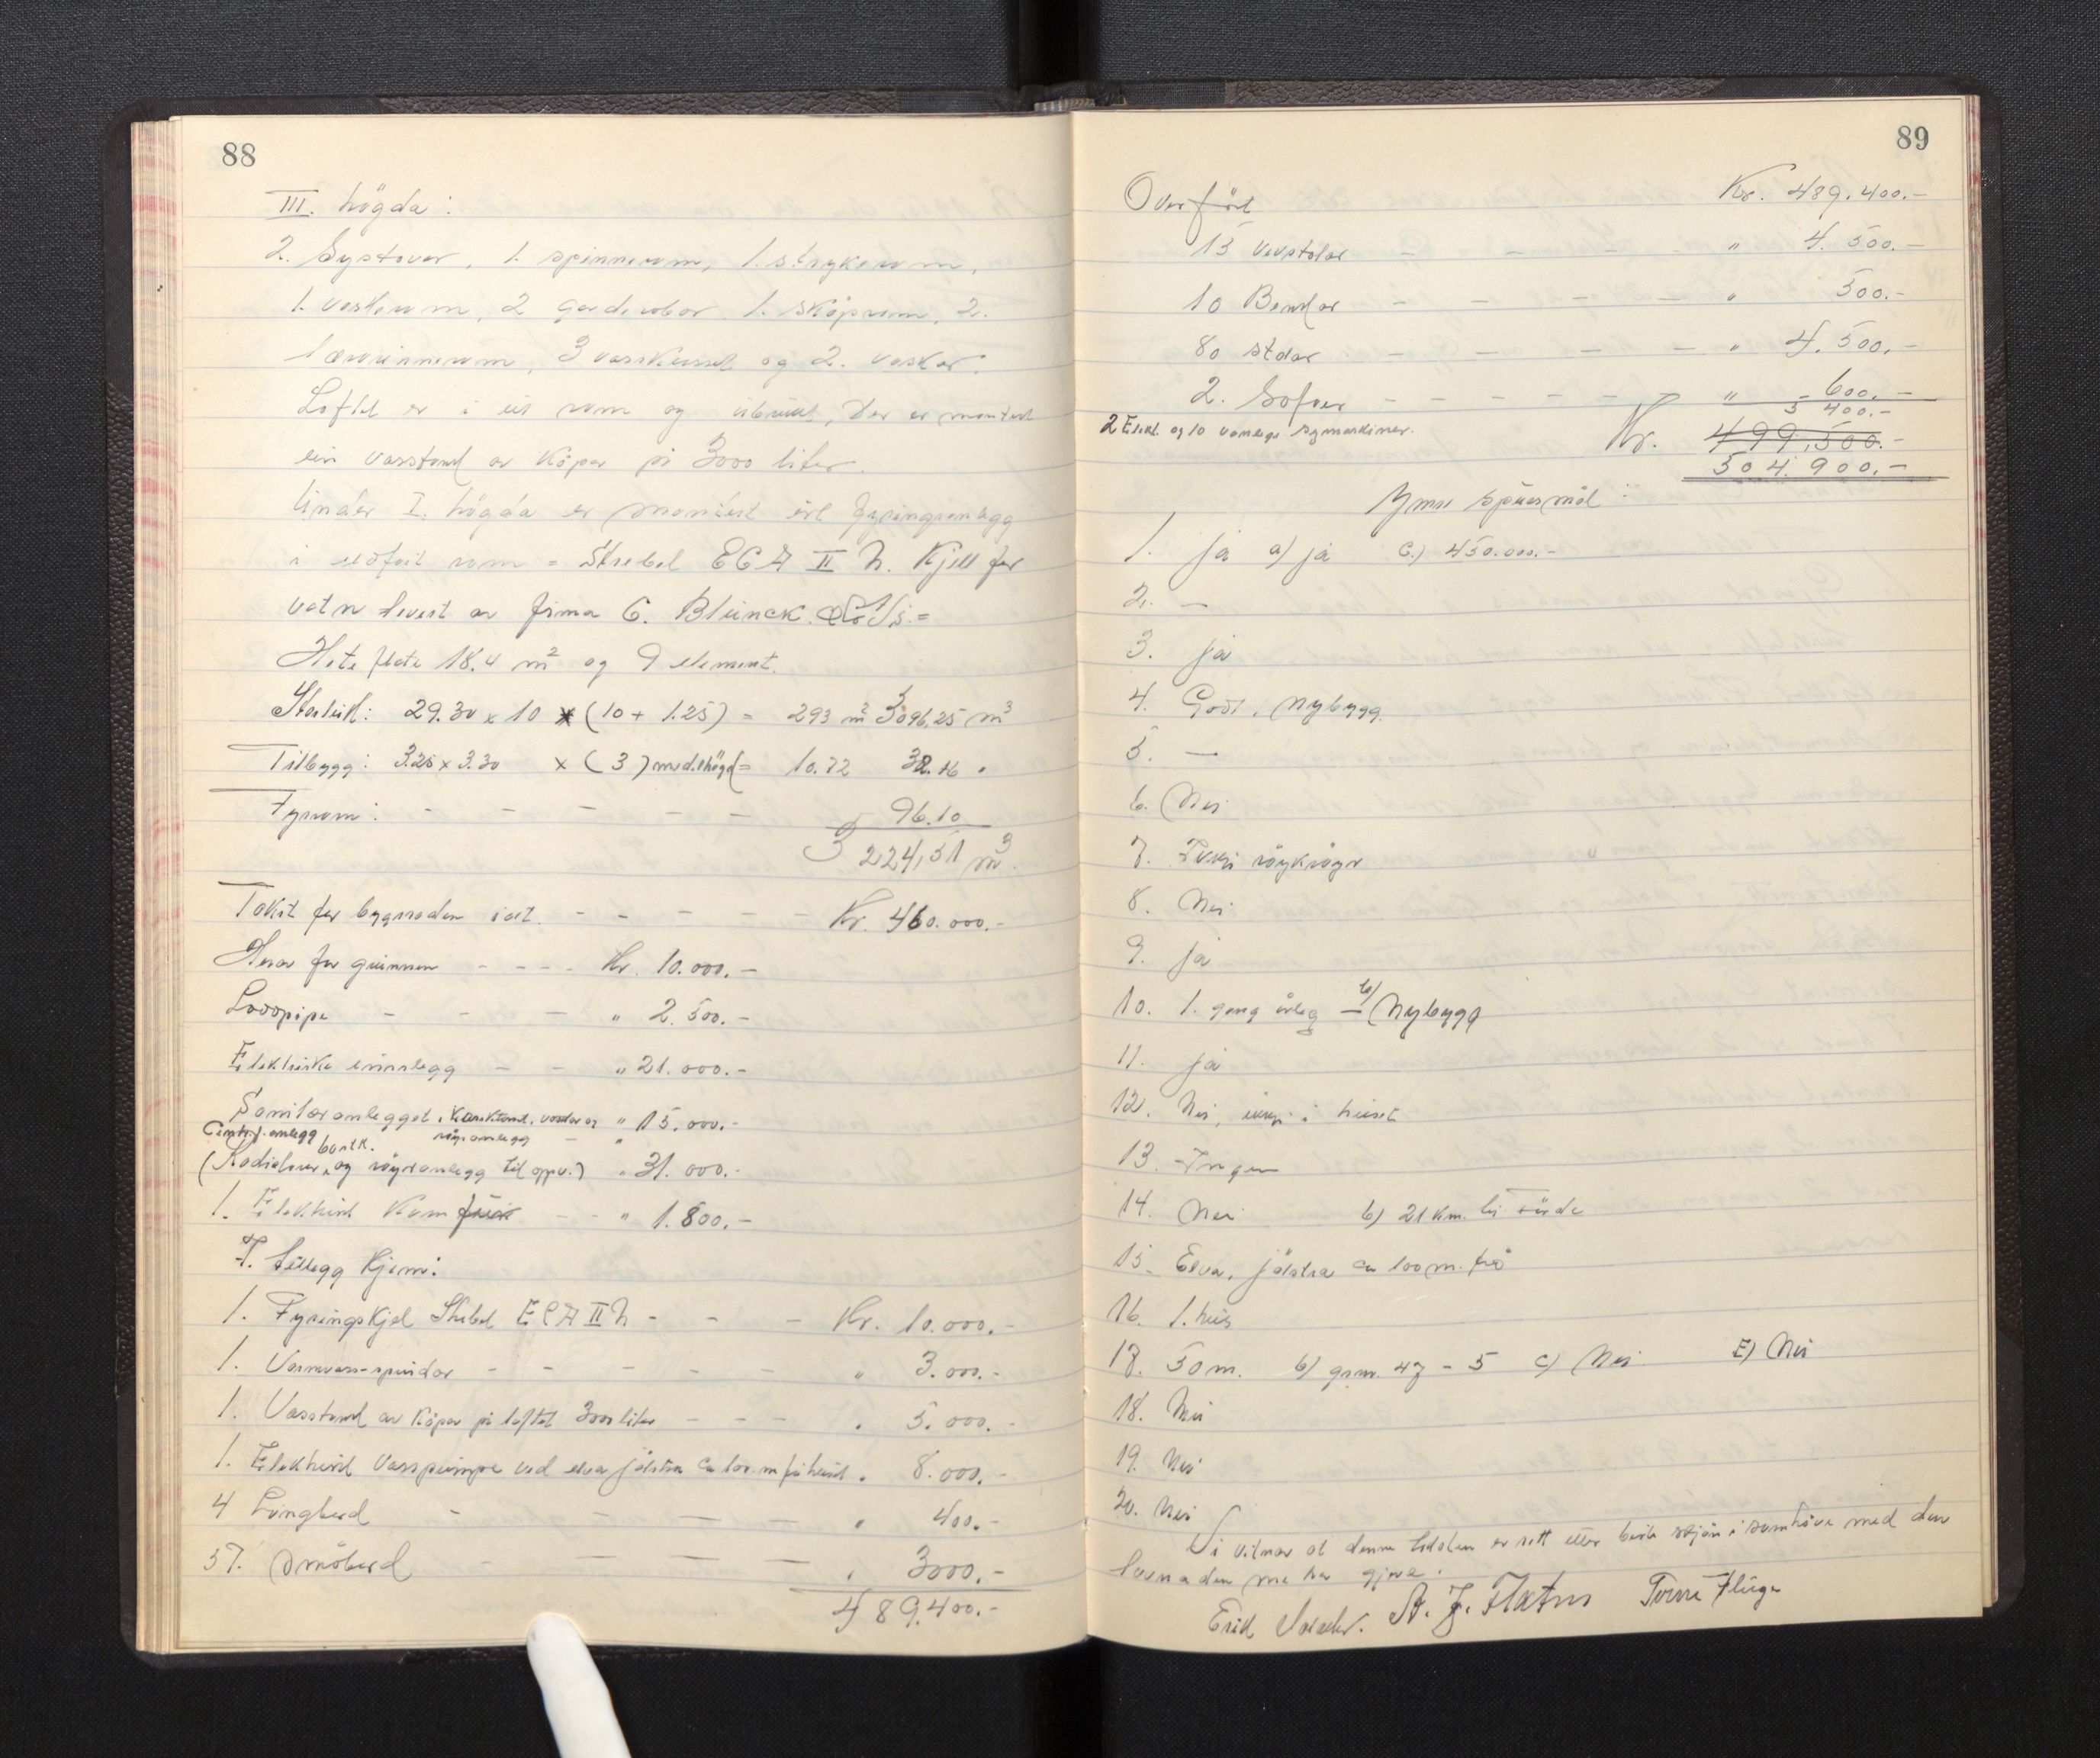 88
III. högda:
2. Systover, 1. spinnerom, 1. strykerom,
1. vaskerom, 2 garderober 1. skåprom, 2.
lærerinnerom, 3 vassklosett og 2. vaskar.
Loftet er i eit rom og ubrukt, Der er montert
ein vasstank av köpar på 3000 liter.
Under I. högda er montert eit fyringsanlegg
i eldfast rom = Strebel ECA II N. Kjell for
vatn levert av firma C. Blunck
Hete flate 18.4 m² og 9 element.
Storleik: 29.30 x 10 x (10 + 1.25) = 293 m² 3096,25 m³
Tilbygg: 3.25 x 3.30 x (3) med.högd = 10.72 32.16 "
Fyrrom: - - - - - 96.10
3 224,51 m³.
Takst for bygnaden i alt - - - - - Kr. 460.000.-
Herav for grunnen - - - - Kr. 10.000.-
Loddpipe - - - - " 2.500.-
Elektriske innlegg - - " 21.000.-
Sanitæranlegget, vasstank, vaskar og " 15.000.-
röyranlegg - "
Centr.f. anlegg
berek.
(Radiatorer og röyranlegg til oppv.) " 31.000.-
1. Elektrisk Komfuir - - " 1.800.-
I tillegg kjem:
1. Fyringskjel Strebel ECA II N - - - Kr. 10.000.-
1. Varmvass-spreidar - - - - - - " 3.000.-
1. Vasstank av köpar på loftet 3000 liter - - - " 5.000.-
1. Elektrisk Vasspumpe ved elva jölstra ca 100 m frå huset " 8.000.-
4 Langbord - - - - " 400.-
37. Småbord - - - - " 3000.-
489.400.-
89
Overfört Kr. 489.400.-
15 vevstolar - - - - " 4.500.-
10 Benkar - - - - " 500.-
80 stolar - - - - " 4.500.-
2. Sofaer - - - - - - " 600.-
2 Elekt. og 10 vanlege symaskiner. 5 400.-
Kr. 499.500.-
504.900.-
Ymse spörsmål:
1. ja a) ja c.) 450.000.-
2. -
3. ja
4. God, nybygg.
5. -
6. Nei
7. Ikkje röykröyr
8. Nei
9. ja
10. 1. gang årleg - b) Nybygg
11. ja
12. Nei, ikkje i huset
13. Ingen
14. Nei b) 21 km. til Förde
15. Elva, jölstra ca 100 m. frå
16. 1. hus
17. 50 m. b) grnr. 47 - 5 c) Nei E) Nei
18. Nei
19. Nei
20. Nei
Vi vitnar at denne taksten er sett etter beste skjön i samhöve med den
lovnaden me har gjeve.
Erid A. J. Flatnes Tore Fluge